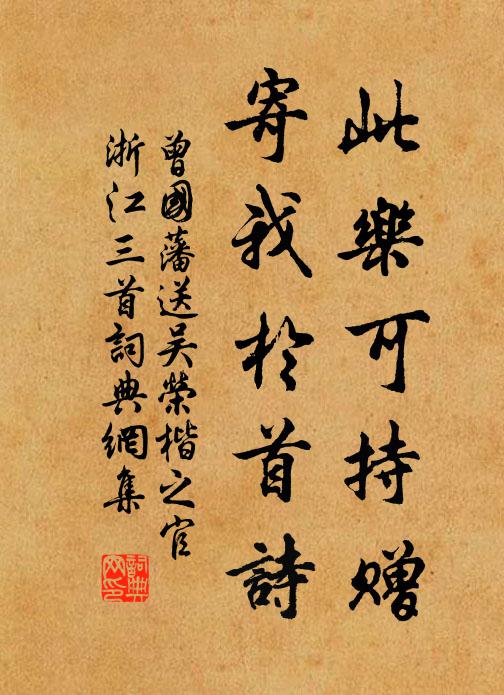 此樂可持贈
寄我於首詩
曾國藩送吴榮楷之官
浙江三首詞典網集
詞典
网印